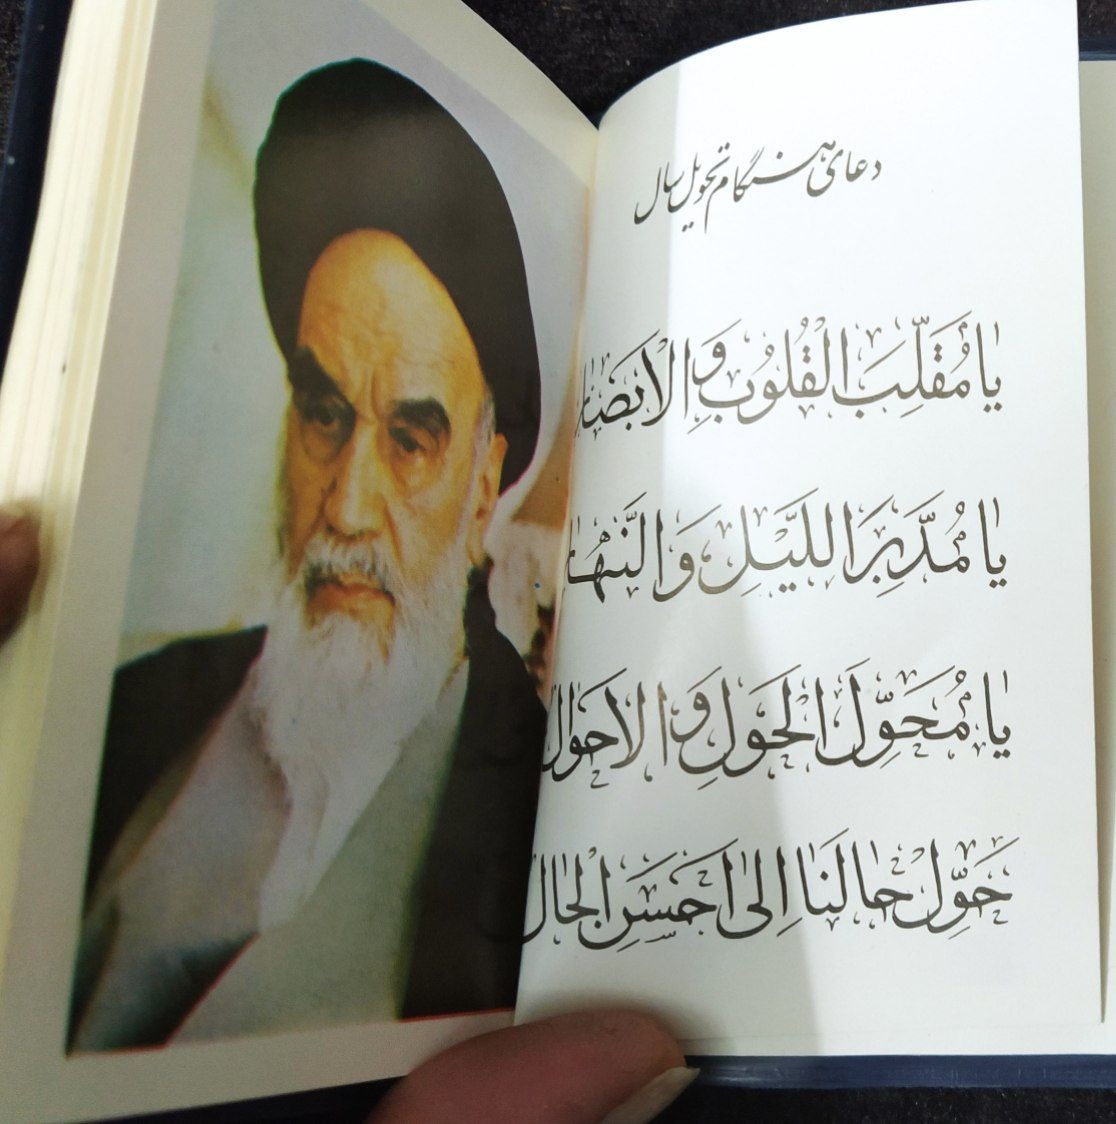 دعای هنگام تحویل سال
یٰا مُقَلِّبَ الْقُلُوبِ وَ الْاَبْصٰارِ
یٰا مُدَبِّرَ اللَّیْلِ وَ النَّهٰارِ
یٰا مُحَوِّلَ الْحَوْلِ وَ الْاَحْوٰالِ
حَوِّلْ حٰالَنٰا اِلیٰ اَحْسَنِ الْحٰالِ